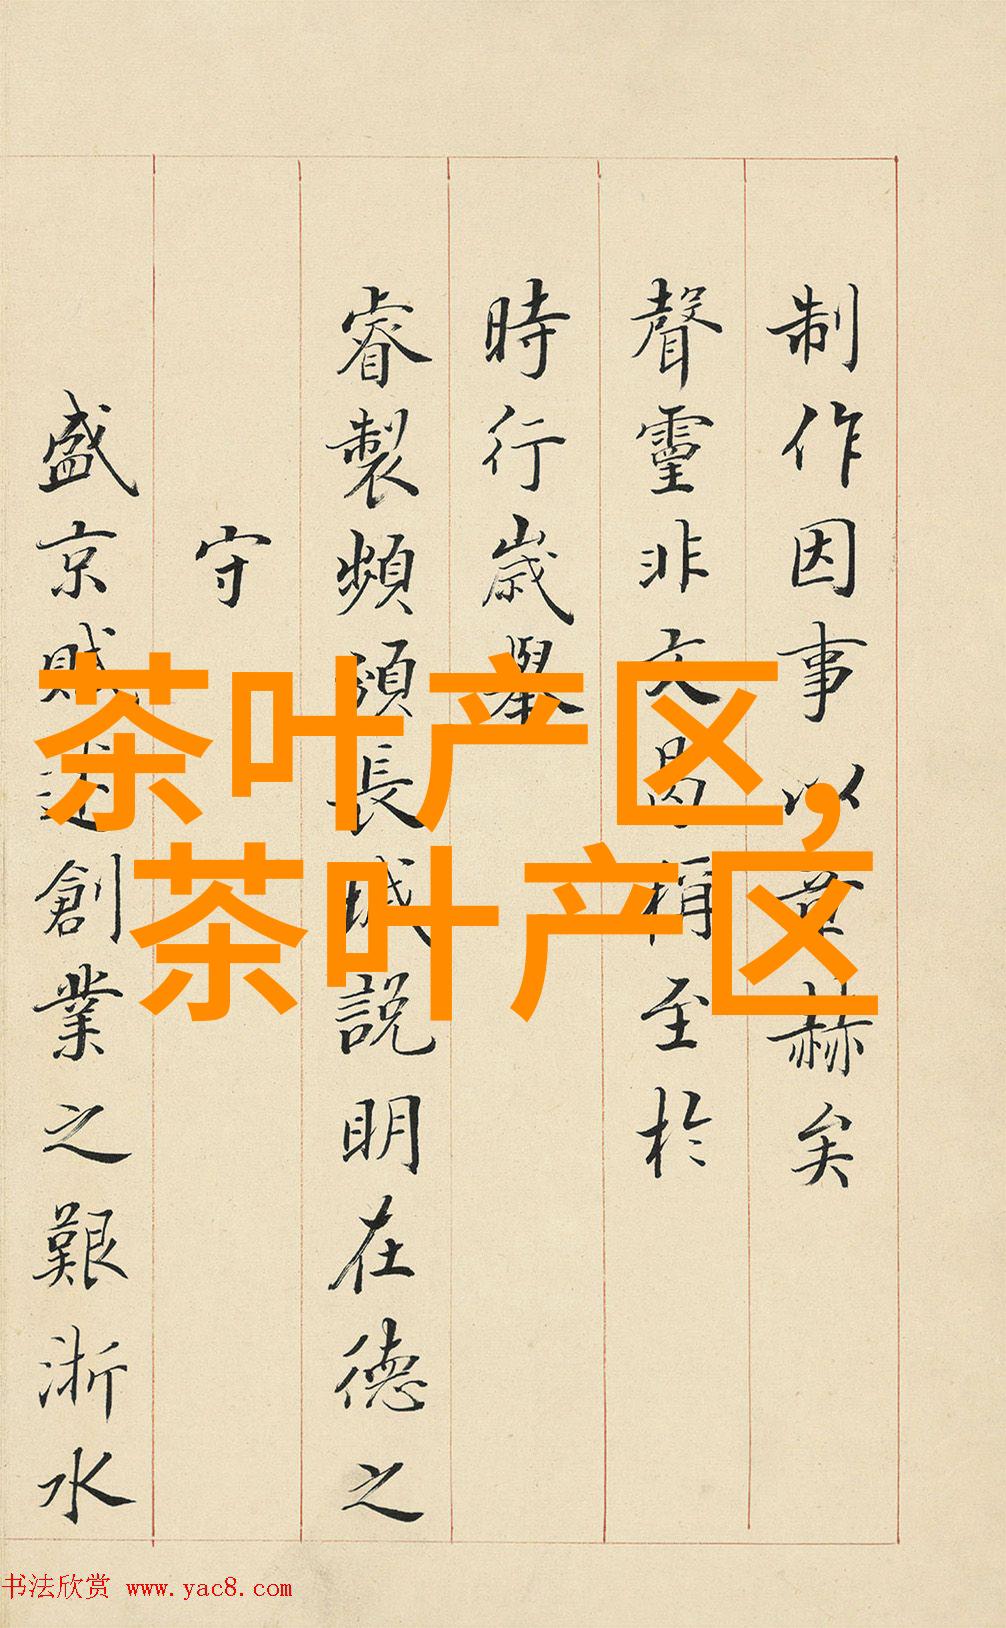 制作因事以並赫矣
聲靈非文曷稱至於
時行歲舉
睿製頻頒長城說明在德之
守
盛京賦述創業之艱浙水
茶叶产区,
茶叶产区
书法欣赏 www.yac8.com